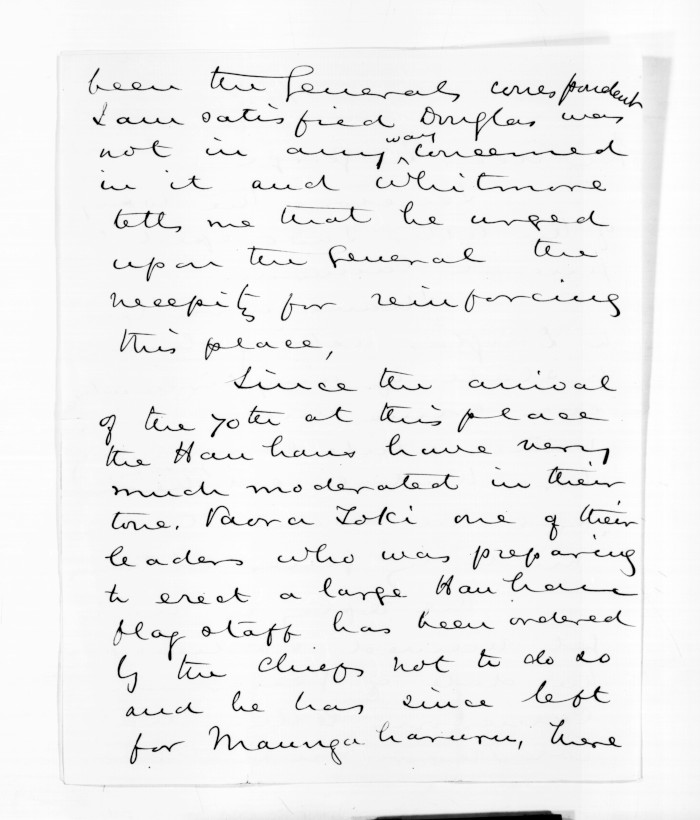 been the Generals correspondent
I am satisfied Douglas was
not in any way concerned
in it and Whitmore
tells me that he urged
upon the General the
necessity for reinforcing
this place,
Since the arrival
of the 70th at this place
the Hauhaus have very
much moderated in their
tone. Paora Toki one of their
leaders who was preparing
to erect a large Hauhau
flag staff has been ordered
by the Chiefs not to do so
and he has since left
for Maungaharuru, There